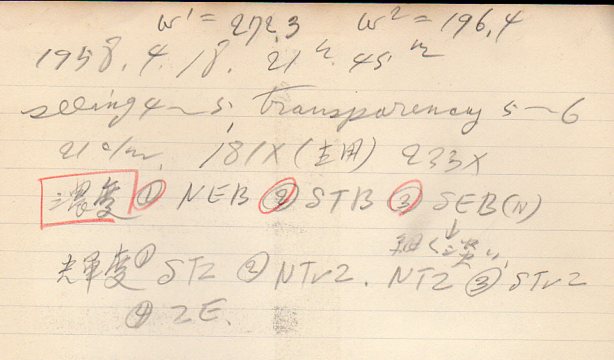 w' = 272.3 w² = 196.4
1958. 4. 18. 21ʰ 45ᵐ
seeing 4~5, transparency 5~6
21 c/m. 181X (主用) 233X
濃度 ① NEB ② STB ③ SEB(N)
↓
細く淡い
輝度 ① STZ ② NTrZ. NTZ ③ STrZ
④ ZE.